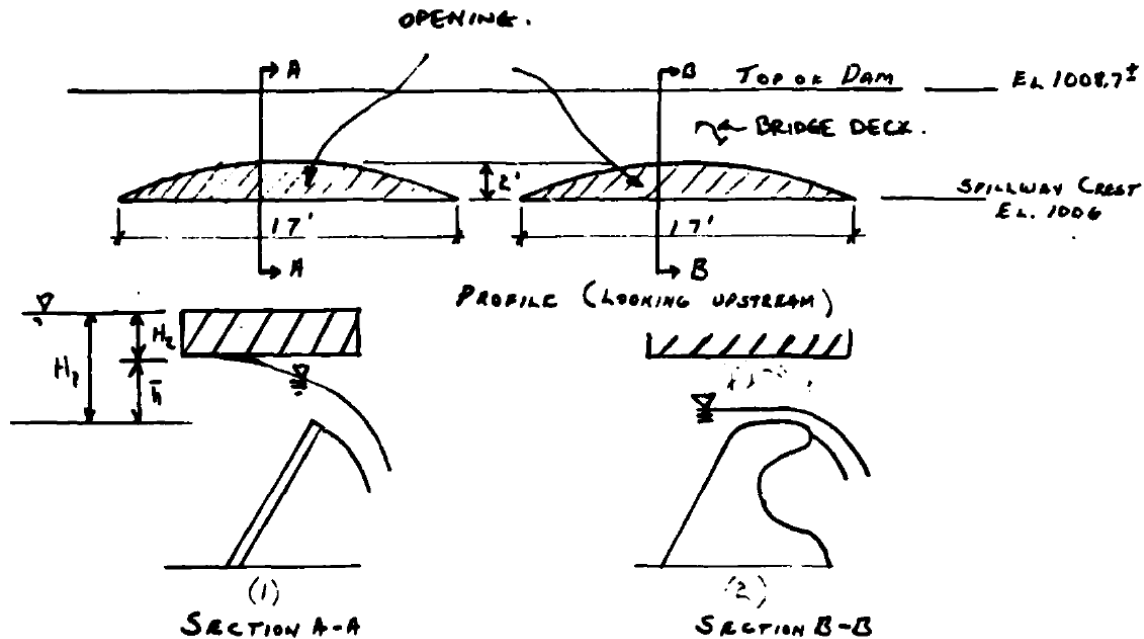 OPENING.
A A
B B
TOP OF DAM EL 1008.7±
BRIDGE DECK.
2'
SPILLWAY CREST
EL. 1006
17' 17'
PROFILE (LOOKING UPSTREAM)
H₁ H₂ h̄
(1) (2)
SECTION A-A SECTION B-B